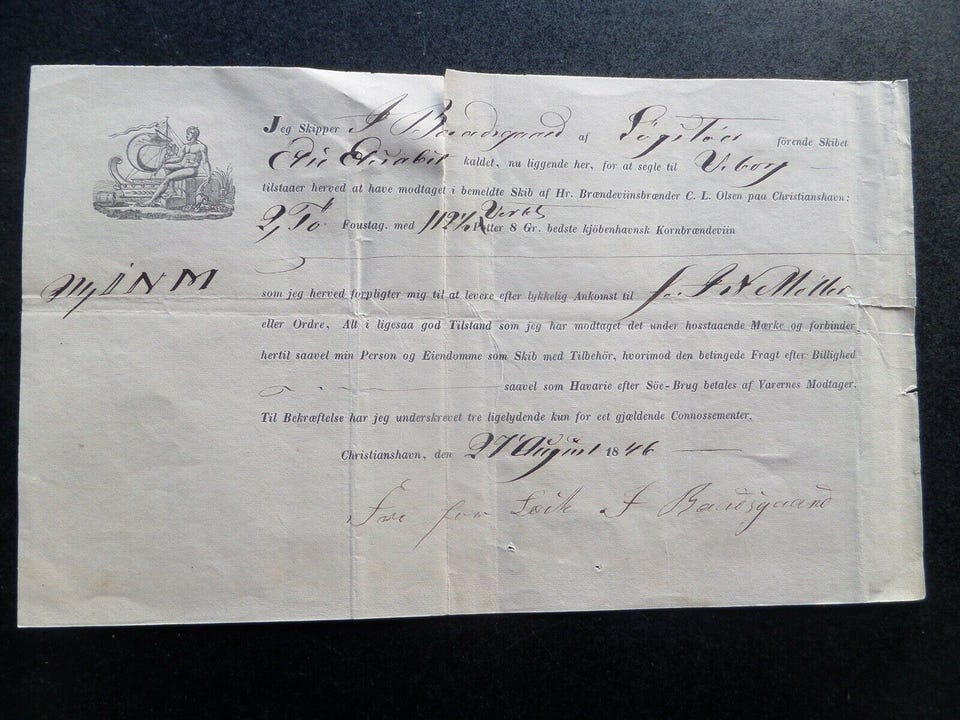 Jeg Skipper J Baadsgaard af Løgstør førende Skibet
kaldet, nu liggende her, for at segle til Viborg
tilstaaer herved at have modtaget i bemeldte Skib af Hr. Brændeviinsbrænder C. L. Olsen paa Christianshavn:
2 Foustag. med 112½ Potter 8 Gr. bedste kjöbenhavnsk Kornbrændeviin
NM
som jeg herved forpligter mig til at levere efter lykkelig Ankomst til Møller
eller Ordre, Alt i ligesaa god Tilstand som jeg har modtaget det under hosstaaende Mærke og forbinder
hertil saavel min Person og Eiendomme som Skib med Tilbehör, hvorimod den betingede Fragt efter Billighed
saavel som Havarie efter Söe-Brug betales af Varernes Modtager.
Til Bekræftelse har jeg underskrevet tre ligelydende kun for eet gjældende Connossementer.
Christianshavn, den 27 August 1846
J Baadsgaard